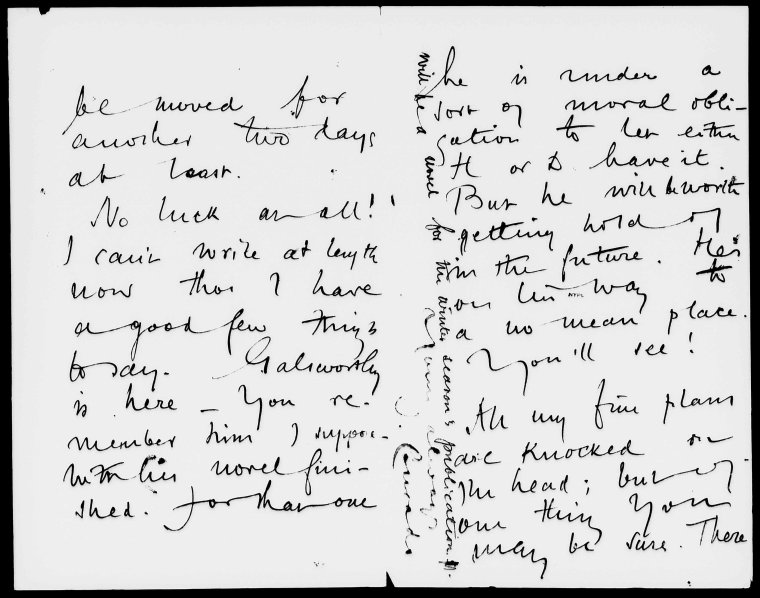 be moved for
another two days
at least.
No luck at all!
I can't write at length
now tho' I have
a good few things
to say. Galsworthy
is here – You re-
member him I suppose –
with his novel fini-
shed. For that one
he is under a
sort of moral obli-
gation to let either
H or D have it.
But he will be worth
getting hold of
in the future. He's
on his way to
a no mean place.
You'll see!
All my fine plans
are knocked on
the head; but of
one thing you
may be sure. There
will be a novel for the winter season's publication.
Yours always
J. Conrad